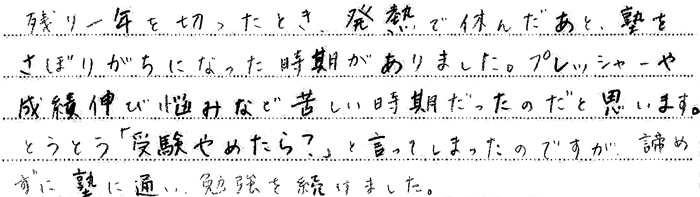 残り一年を切ったとき、発熱で休んだあと、塾を
さぼりがちになった時期がありました。プレッシャーや
成績伸び悩みなど苦しい時期だったのだと思います。
とうとう「受験やめたら?」と言ってしまったのですが、諦め
ずに塾に通い、勉強を続けました。